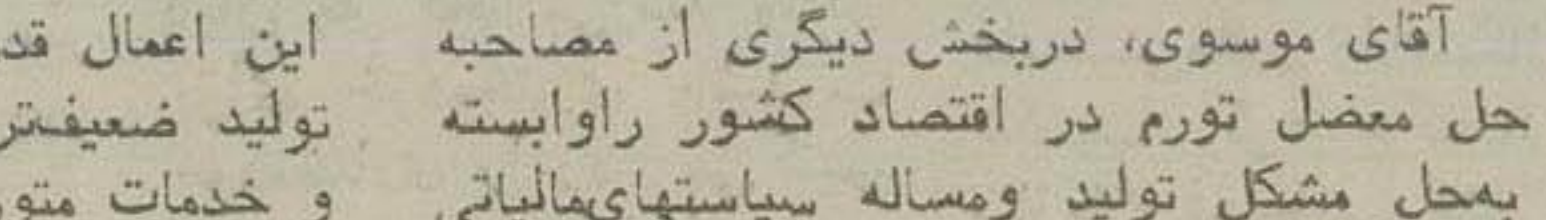 آقای موسوی، دربخش دیگری از مصاحبه
حل معضل تورم در اقتصاد کشور راوابسته
به‌حل مشکل تولید ومساله سیاستهای‌مالیاتی
این اعمال
تولید ضعیف‌تر
و خدمات